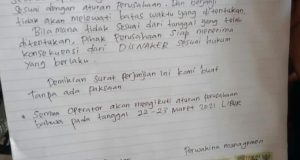 Sesuai dengan aturan Perusahaan. Dan berjanji
tidak akan melewati batas waktu yang ditentukan.
Bila Mana tidak sesuai dari tanggal yang telah
ditentukan, Pihak Perusahaan siap menerima
konsekuensi dari DISNAKER sesuai hukum
yang berlaku.
Demikian surat perjanjian ini kami buat
Tanpa ada paksaan
* Semua Operator akan mengikuti aturan perusahaan
bahwa pada tanggal 22-23 Maret 2021 LIBUR
Perwakilan managemen